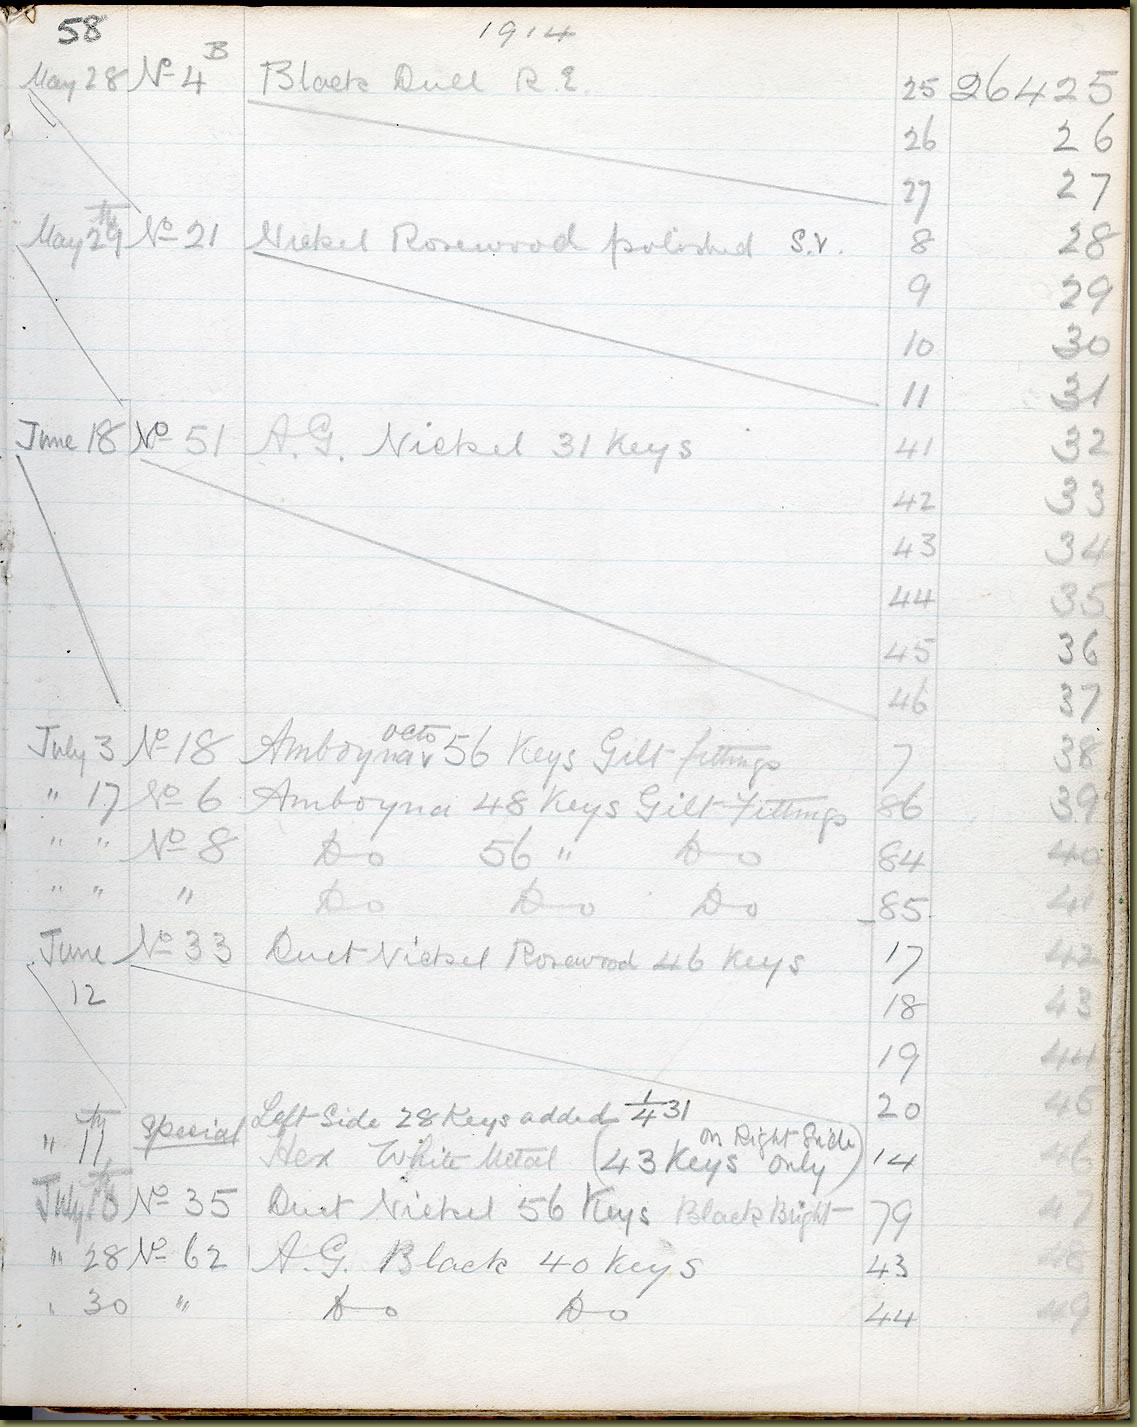 58 1914
May 28 No 4B Black Duel R.E. 25 26425
26 26
27 27
May 29th No 21 Nickel Rosewood polished S.V. 8 28
9 29
10 30
11 31
June 18 No 51 A.G. Nickel 31 Keys 41 32
42 33
43 34
44 35
45 36
46 37
July 3 No 18 Amboyna octo 56 Keys Gilt fittings 7 38
" 17 No 6 Amboyna 48 Keys Gilt Fittings 86 39
" " No 8 Do 56 " Do 84 40
" " " Do Do Do 85 41
June No 33 Duet Nickel Rosewood 46 Keys 17 42
12 18 43
19 44
20 45
Left Side 28 Keys added 1/4 31
" 11th Special Hex White Metal (43 Keys on Right Side only) 14 46
July 10th No 35 Duet Nickel 56 Keys Black Bright 79 47
" 28 No 62 A.G. Black 40 Keys 43 48
" 30 " Do Do 44 49